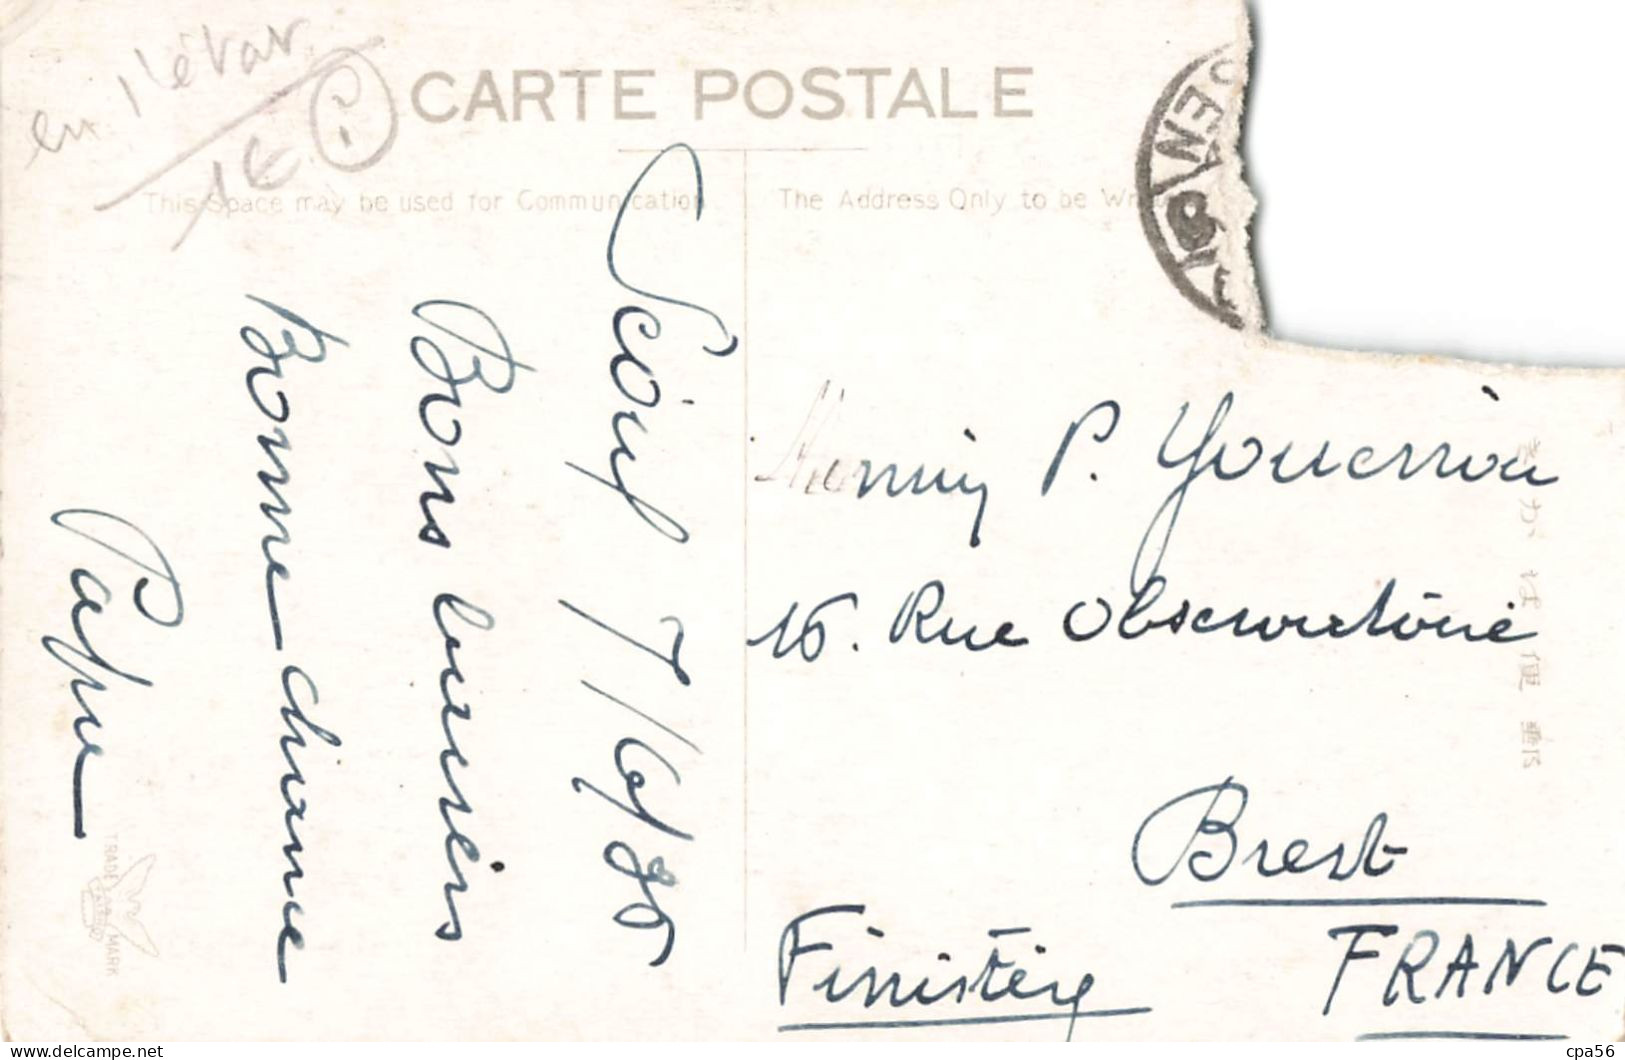 en l'état
1€
CARTE POSTALE
This Space may be used for Communication.
The Address Only to be
Séoul 7/6/35
Bons baisers
Bonne chance
Papa
P. Gouerriou
16. Rue Observatoire
Brest
Finistère
FRANCE
便
TRADE MARK
cpa56